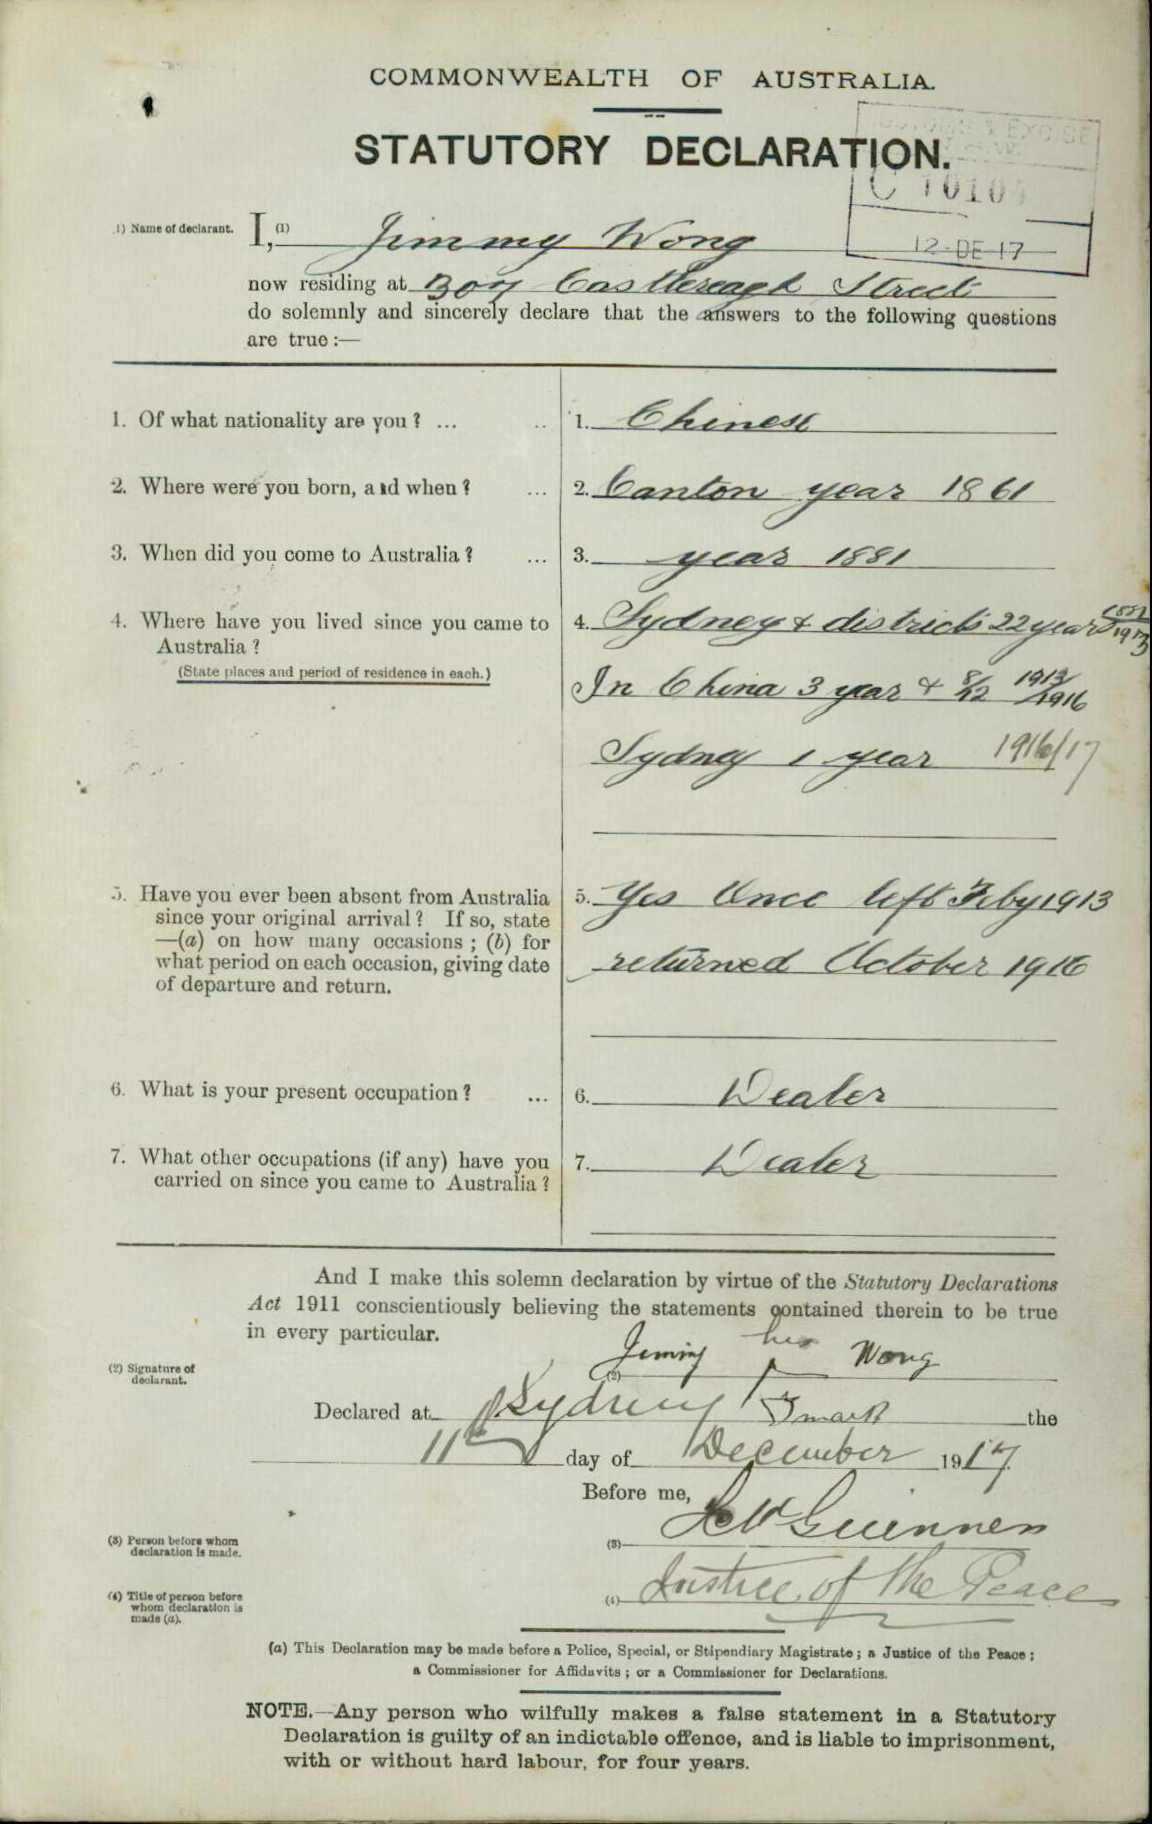 COMMONWEALTH OF AUSTRALIA.
STATUTORY DECLARATION.
CUSTOMS & EXCISE
C 10104
12-DE-17
1) Name of declarant. I, (1) Jimmy Wong
now residing at 307 Castlereagh Street
do solemnly and sincerely declare that the answers to the following questions
are true:—
1. Of what nationality are you? ... .. 1. Chinese
2. Where were you born, and when? ... 2. Canton year 1861
3. When did you come to Australia? ... 3. year 1881
4. Where have you lived since you came to 4. Sydney & districts 22 years 1913
Australia?
(State places and period of residence in each.)
In China 3 year & 8/12 1913/1916
Sydney 1 year 1916/17
5. Have you ever been absent from Australia 5. Yes Once left Feby 1913
since your original arrival? If so, state
—(a) on how many occasions; (b) for
what period on each occasion, giving date returned October 1916
of departure and return.
6. What is your present occupation? ... 6. Dealer
7. What other occupations (if any) have you 7. Dealer
carried on since you came to Australia?
And I make this solemn declaration by virtue of the Statutory Declarations
Act 1911 conscientiously believing the statements contained therein to be true
in every particular.
(2) Signature of
declarant.
Jimmy his Wong
(2)
Declared at Sydney mark the
11th day of December 1917
Before me,
(3) Person before whom
declaration is made.
(3) Guinness
(4) Title of person before
whom declaration is
made (a).
(4) Justice of the Peace
(a) This Declaration may be made before a Police, Special, or Stipendiary Magistrate; a Justice of the Peace;
a Commissioner for Affidavits; or a Commissioner for Declarations.
NOTE.—Any person who wilfully makes a false statement in a Statutory
Declaration is guilty of an indictable offence, and is liable to imprisonment,
with or without hard labour, for four years.